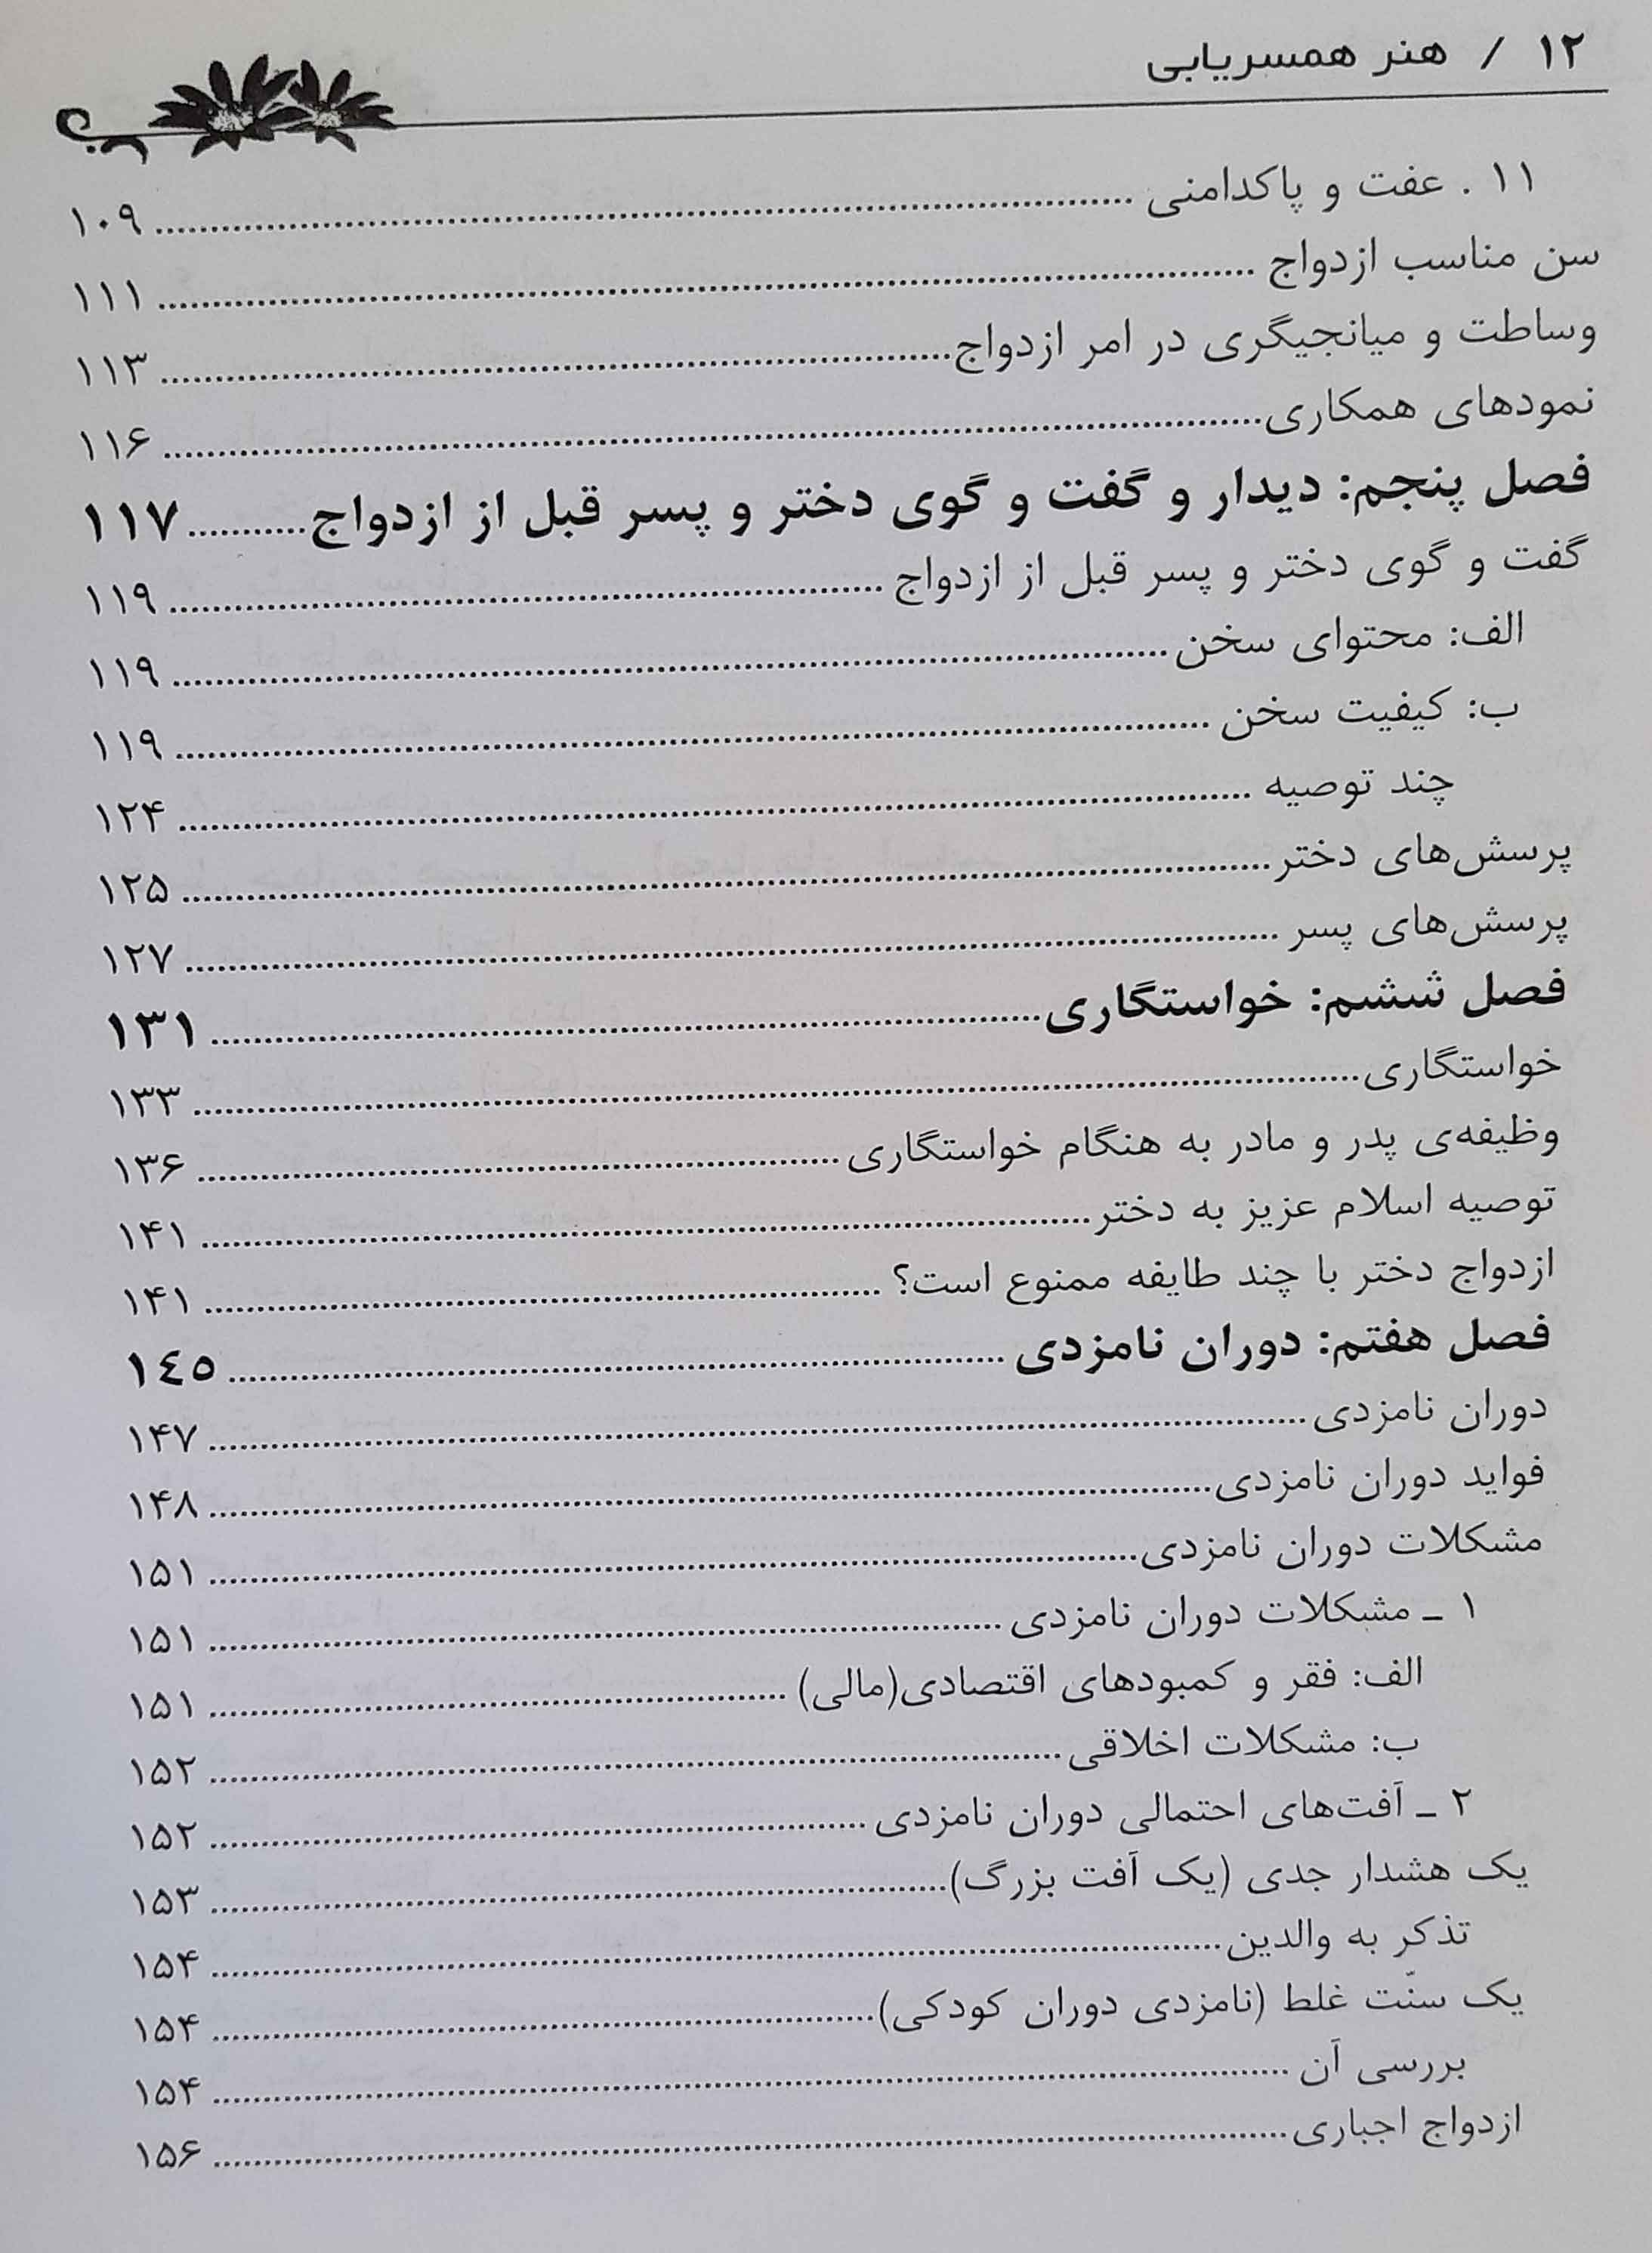 ۱۲ / هنر همسریابی
۱۱ . عفت و پاکدامنی ........................ ۱۰۹
سن مناسب ازدواج ........................ ۱۱۱
وساطت و میانجیگری در امر ازدواج ........................ ۱۱۳
نمودهای همکاری ........................ ۱۱۶
فصل پنجم: دیدار و گفت و گوی دختر و پسر قبل از ازدواج ........... ۱۱۷
گفت و گوی دختر و پسر قبل از ازدواج ........................ ۱۱۹
الف: محتوای سخن ........................ ۱۱۹
ب: کیفیت سخن ........................ ۱۱۹
چند توصیه ........................ ۱۲۴
پرسش‌های دختر ........................ ۱۲۵
پرسش‌های پسر ........................ ۱۲۷
فصل ششم: خواستگاری ........................ ۱۳۱
خواستگاری ........................ ۱۳۳
وظیفه‌ی پدر و مادر به هنگام خواستگاری ........................ ۱۳۶
توصیه اسلام عزیز به دختر ........................ ۱۴۱
ازدواج دختر با چند طایفه ممنوع است؟ ........................ ۱۴۱
فصل هفتم: دوران نامزدی ........................ ١٤٥
دوران نامزدی ........................ ۱۴۷
فواید دوران نامزدی ........................ ۱۴۸
مشکلات دوران نامزدی ........................ ۱۵۱
۱ ـ مشکلات دوران نامزدی ........................ ۱۵۱
الف: فقر و کمبودهای اقتصادی(مالی) ........................ ۱۵۱
ب: مشکلات اخلاقی ........................ ۱۵۲
۲ ـ آفت‌های احتمالی دوران نامزدی ........................ ۱۵۲
یک هشدار جدی (یک آفت بزرگ) ........................ ۱۵۳
تذکر به والدین ........................ ۱۵۴
یک سنّت غلط (نامزدی دوران کودکی) ........................ ۱۵۴
بررسی آن ........................ ۱۵۴
ازدواج اجباری ........................ ۱۵۶